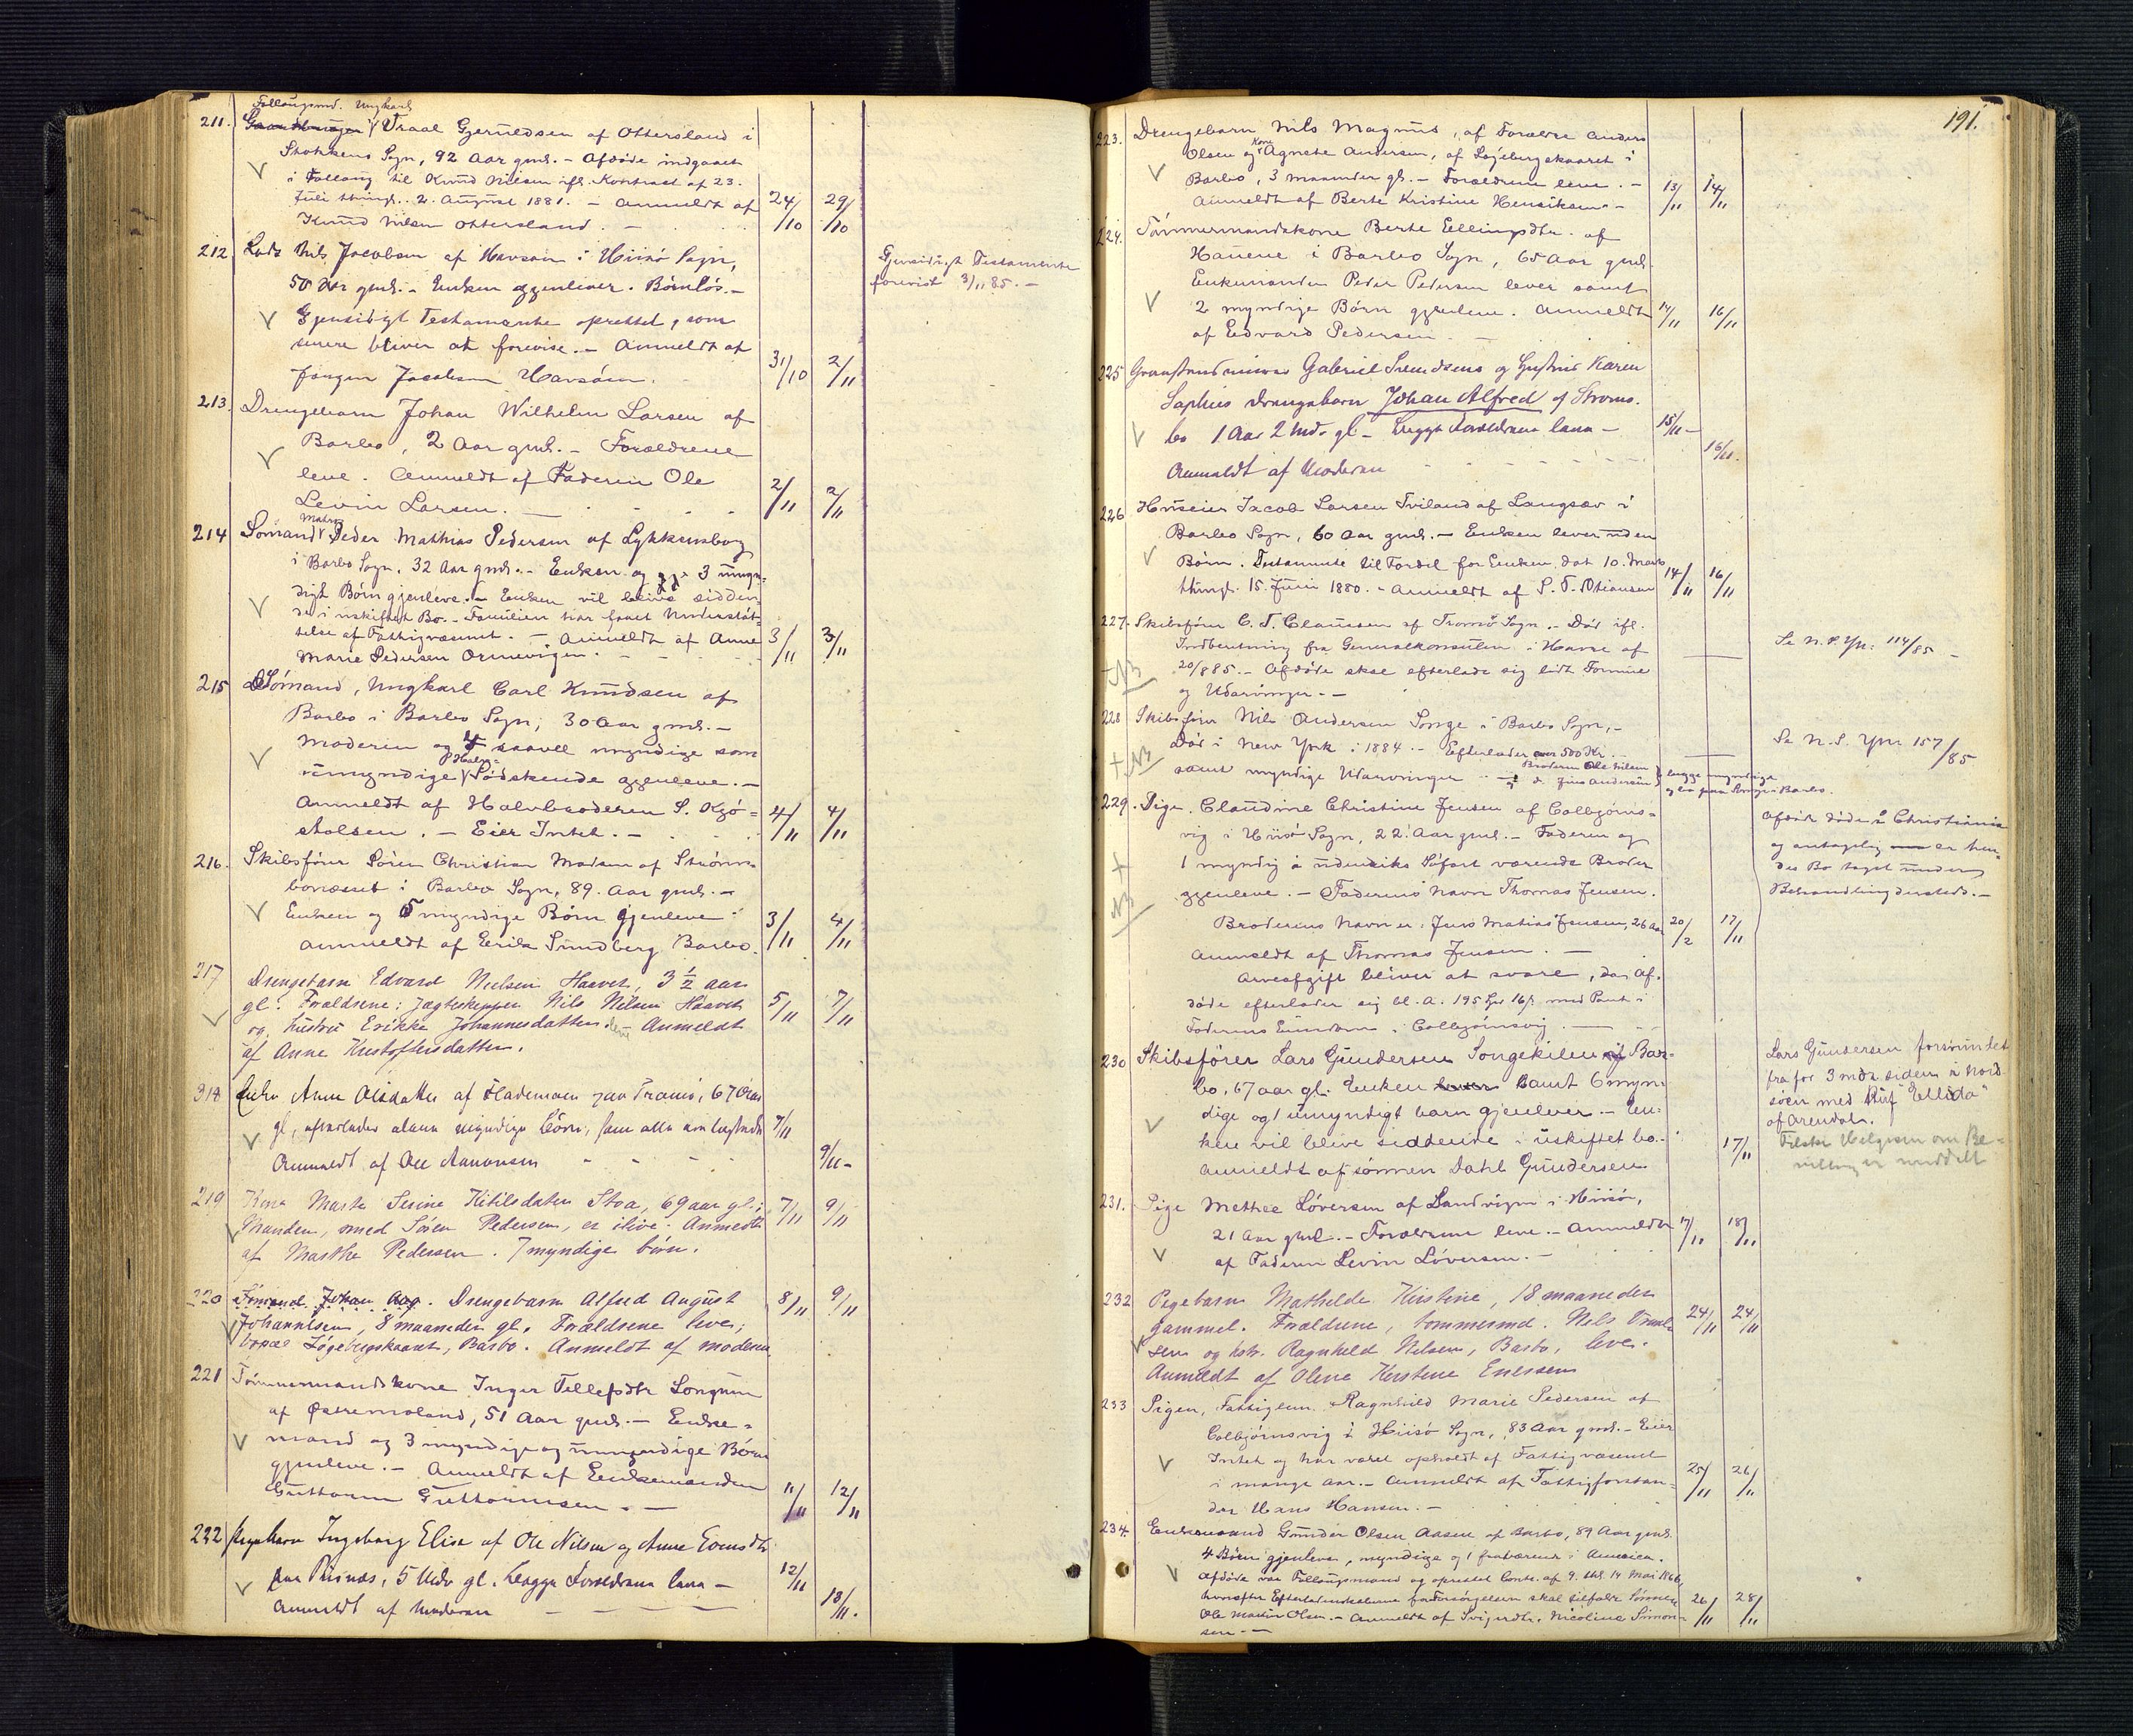 Follaugsmd. Ungkarl
211. Traal Gjeruldsen af Ottersland i
Stokkens Sogn, 92 Aar gml. - Afdøde indgaaet
i Follaug til Knud Nilsen ifl. Kontrakt af 23.
Juli thingl. 2. August 1881. - Anmeldt af
Knud Nilsen Ottersland. - 24/10 29/10
212. Lods Nils Jacobsen af Havsøen i Hiisø Sogn,
50 Aar gml. - Enken gjenlever. Børnløs. -
Gjensidigt Testamente oprettet, som
senere bliver at forevise. - Anmeldt af
Jørgen Jacobsen Havsøen. 31/10 2/11
Gjensidigt Testamente
forevist 3/11 85. -
213. Drengebarn Johan Wilhelm Larsen af
Barbo, 2 Aar gml. - Forældrene
leve. Anmeldt af Faderen Ole
Levin Larsen. - 2/11 2/11
214 Sømand Matros Peder Mathias Pedersen af Lykkensborg
i Barbo Sogn, 32 Aar gml. - Enken og 3 umyn-
digt Børn gjenleve. - Enken vil blive sidden-
de i uskiftet Bo. - Familien har faaet Understøt-
telse af Fattigvæsenet. - Anmeldt af Anne
Marie Pedersen Ormevigen. - 3/11 3/11
215 Sømand, Ungkarl Carl Knudsen af
Barbo i Barbo Sogn, 30 Aar gml. -
Moderen og 4 saavel myndige som
umyndige Halv- Sødskende gjenleve. -
Anmeldt af Halvbroderen S. Kjø-
stolsen. - Eier Intet. - 4/11 4/11
216. Skibsfører Søren Christian Madsen af Strøm-
bonæsset i Barbo Sogn, 89 Aar gml. -
Enken og 5 myndige Børn gjenleve -
Anmeldt af Erik Sundberg Barbo. 3/11 4/11
217 Drengebarn Edvard Nielsen Haavet, 3 1/2 aar
gl. Forældrene: Jagteskipper Nils Nilsen Haavet
og hustru Erikke Johannesdatter. Anmeldt
af Anne Kristoffersdatter. 5/11 7/11
218 Enke Anne Olsdatter af Flademoen paa Tromø, 67 Aar
gl, efterlader alene myndige Børn,
Anmeldt af Ole Aanonsen 7/11 9/11 -
219 Kone Marte Serine Kitilsdatter Stoa, 69 aar gl.;
Manden, smed Søren Pedersen, er ilive. Anmeldt
af Marthe Pedersen. 7 myndige børn. 7/11 9/11
220 Sømand. Johan Aug. Drengebarn Alfred August
Johannesen, 8 maaneder gl. Forældrene lever,
Løgebergskaaret, Barbo. Anmeldt af moderen 8/11 9/11
221 Tømmermandskone Inger Tellefsdtr Longum
af Østremoland, 51 Aar gml. - Enke-
mand og 3 myndige og umyndige Børn
gjenleve. - Anmeldt af Enkemanden
Guttorm Guttormsen. - 11/11 12/11
222 Pigebarn Ingeborg Elise af Ole Nilsen og Anne Evensdtr
paa Pusnæs, 5 Mdr gl. Begge Forældrene leve -
Anmeldt af Moderen 12/11 13/11.
191.
223. Drengebarn Nils Magnus, af Forældre Anders
Olsen og Kone Agnete Andersen, af Løgebergskaaret i
Barbo, 3 Maaneder gl. - Forældrene leve. -
Anmeldt af Berte Kristine Henriksen - 13/11 14/11
224. Tømmermandskone Berte Ellingsdtr. af
Hauene i Barbo Sogn, 65 Aar gml.
Enkemanden Peder Pedersen lever samt
2 myndige Børn gjenleve. Anmeldt
af Edvard Pedersen. 14/11 16/11
225 Gabriel Svendsens og Hustru Karen
Sophies Drengebarn Johan Alfred af Strøms-
bo 1 Aar 2 Md. gl - Begge Forældrene leve -
Anmeldt af Moderen 15/11 - 16/11.
226 Huseier Jacob Larsen Tviland af Langsæv i
Barbo Sogn, 60 Aar gml. - Enken lever uden
Børn. Testamente til Fordel for Enken, dat 10. Marts
thingl. 15. Juni 1880. - Anmeldt af S. T. Othiansen 14/11 16/11
227. Skibsfører C. T. Claussen af Tromø Sogn. - Død ifl.
Indberetning fra Generalkonsulen i Havre af
20/8 85. - Afdøde skal efterlade sig lidt Formue
og Udarvinger. -
NB
Se N. S. Yn: 114/85 -
228 Skibsfører Nils Andersen Songe i Barbo Sogn, -
Død i New York i 1884. - Efterlader over 500 Kr.
samt myndige Udarvinger - Broderen Ole Nilsen
og d. Jens Andersen begge myndige
og bo paa Songe i Barbo.
NB
Se N. S. Yn: 157/85
229. Pige Claudine Christine Jensen af Colbjørns-
vig i Hiisø Sogn, 22 Aar gml. - Faderen og
1 myndig i udenriks Søfart værende Broder
gjenleve. - Faderens Navn Thomas Jensen.
Broderens Navn er: Jens Mathias Jensen, 26 Aar 20/2 17/11
Anmeldt af Thomas Jensen. -
Arveafgift bliver at svare, da af-
døde efterlader sig bl. a. 195 Spd 16 s. med Pant i
Faderens Eiendom i Colbjørnsvig. -
NB
Afdøde døde i Christiania
og antagelig er hen-
des Bo taget under
Behandling dersteds. -
230 Skibsfører Lars Gundersen Songekilen af Bar-
bo, 67 aar gl. Enken samt 6 myn-
dige og 1 umyndigt barn gjenlever. - En-
ken vil blive siddende i uskiftet bo. -
Anmeldt af sønnen Dahl Gundersen 17/11
Lars Gundersen forsvundet
fra for 3 mdr. siden i Nord-
søen med Skif "Ellida"
af Arendal.
om Be-
villing er meddelt
231. Pige Mathea Løversen af Sandvigen i Hiisø,
21 Aar gml. - Forældrene leve. - Anmeldt
af Faderen Levin Løversen. - 17/11 18/11
232 Pigebarn Mathilde Kirstine, 18 maaneder
gammel. Forældrene, tømmermd. Nils
og hstr. Ragnhild Nilsen, Barbo, leve.
Anmeldt af Oline Kirstine 24/11 24/11
233 Pigen, Fattiglem Ragnhild Marie Pedersen af
Colbjørnsvig i Hiisø Sogn, 83 Aar gml. - Eier
Intet og har været opholdt af Fattigvæsenet
i mange Aar. - Anmeldt af Fattigforstan-
der Hans Hansen. - 25/11 26/11
234. Enkemand Gunder Olsen Aasen af Barbo, 89 Aar gml.
4 Børn gjenlever, myndige og 1 fraværende i America.
Afdøde var Follaugsmand og oprettet Contr. af 9. thl. 14 Mai 1866,
hvorefter Efterladenskaberne for Forsørgelsen skal tilfalde Sønnen
Ole Martin Olsen. - Anmeldt af Svigerdtr. Nicoline Simon-
sen - 26/11 28/11